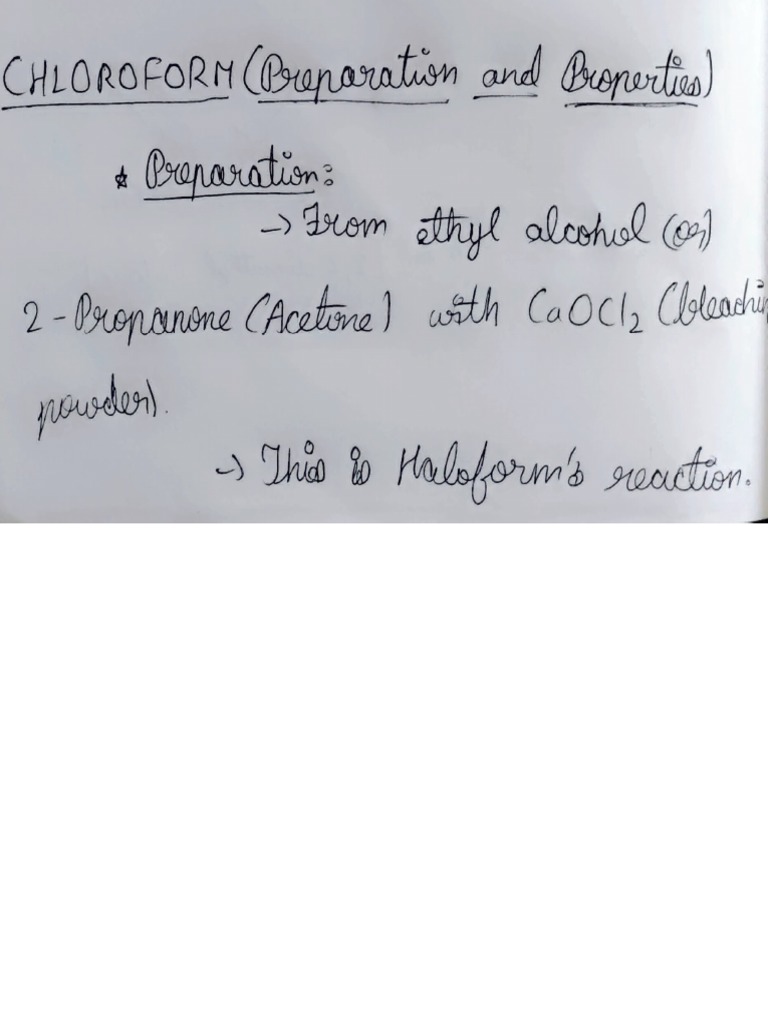 CHLOROFORM (Preparation and Properties)
* Preparation:
-> From ethyl alcohol (or)
2-Propanone (Acetone) with CaOCl₂ (bleachin
powder).
-> This is Haloform's reaction.